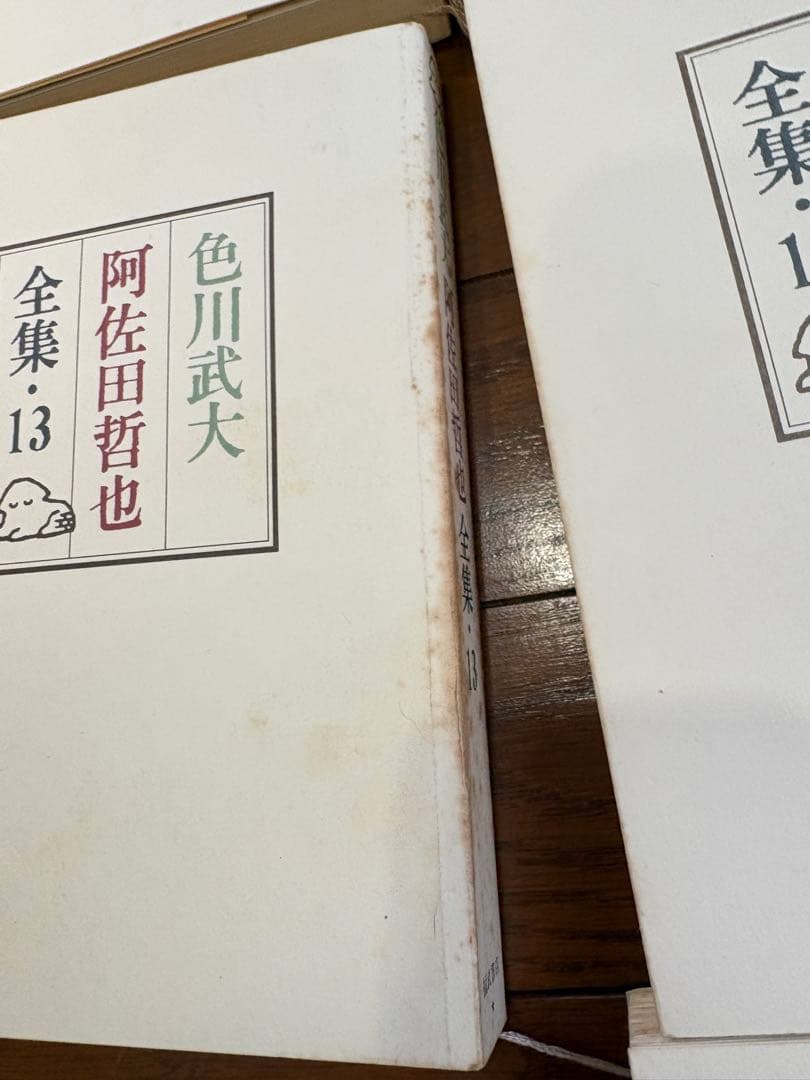 色川武大
阿佐田哲也
全集・13
阿佐田哲也 全集・13
全集・1